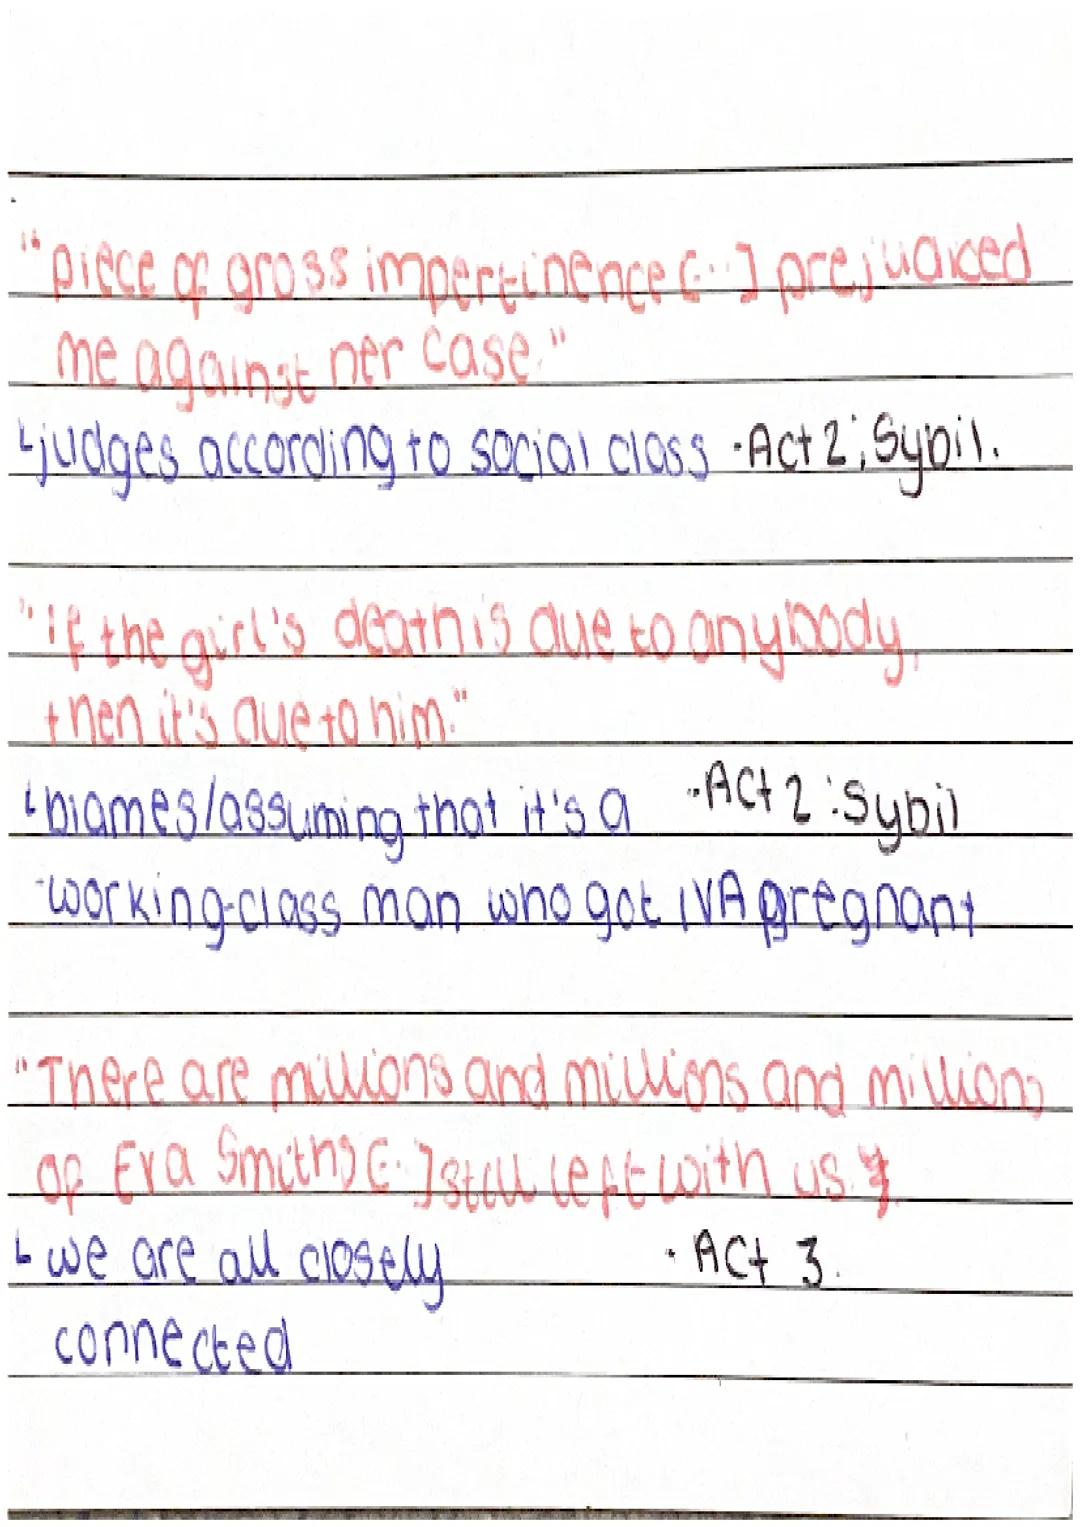 "piece of gross impertinence [...] prejudiced
me against her case."
↳judges according to social class ·Act 2; Sybil.
"If the girl's death is due to anybody,
then it's due to him."
↳blames/assuming that it's a ·Act 2: Sybil
-working-class man who got IVA pregnant
"There are millions and millions and millions
of Eva Smiths [..] still left with us."
↳ we are all closely · ACt 3.
connected